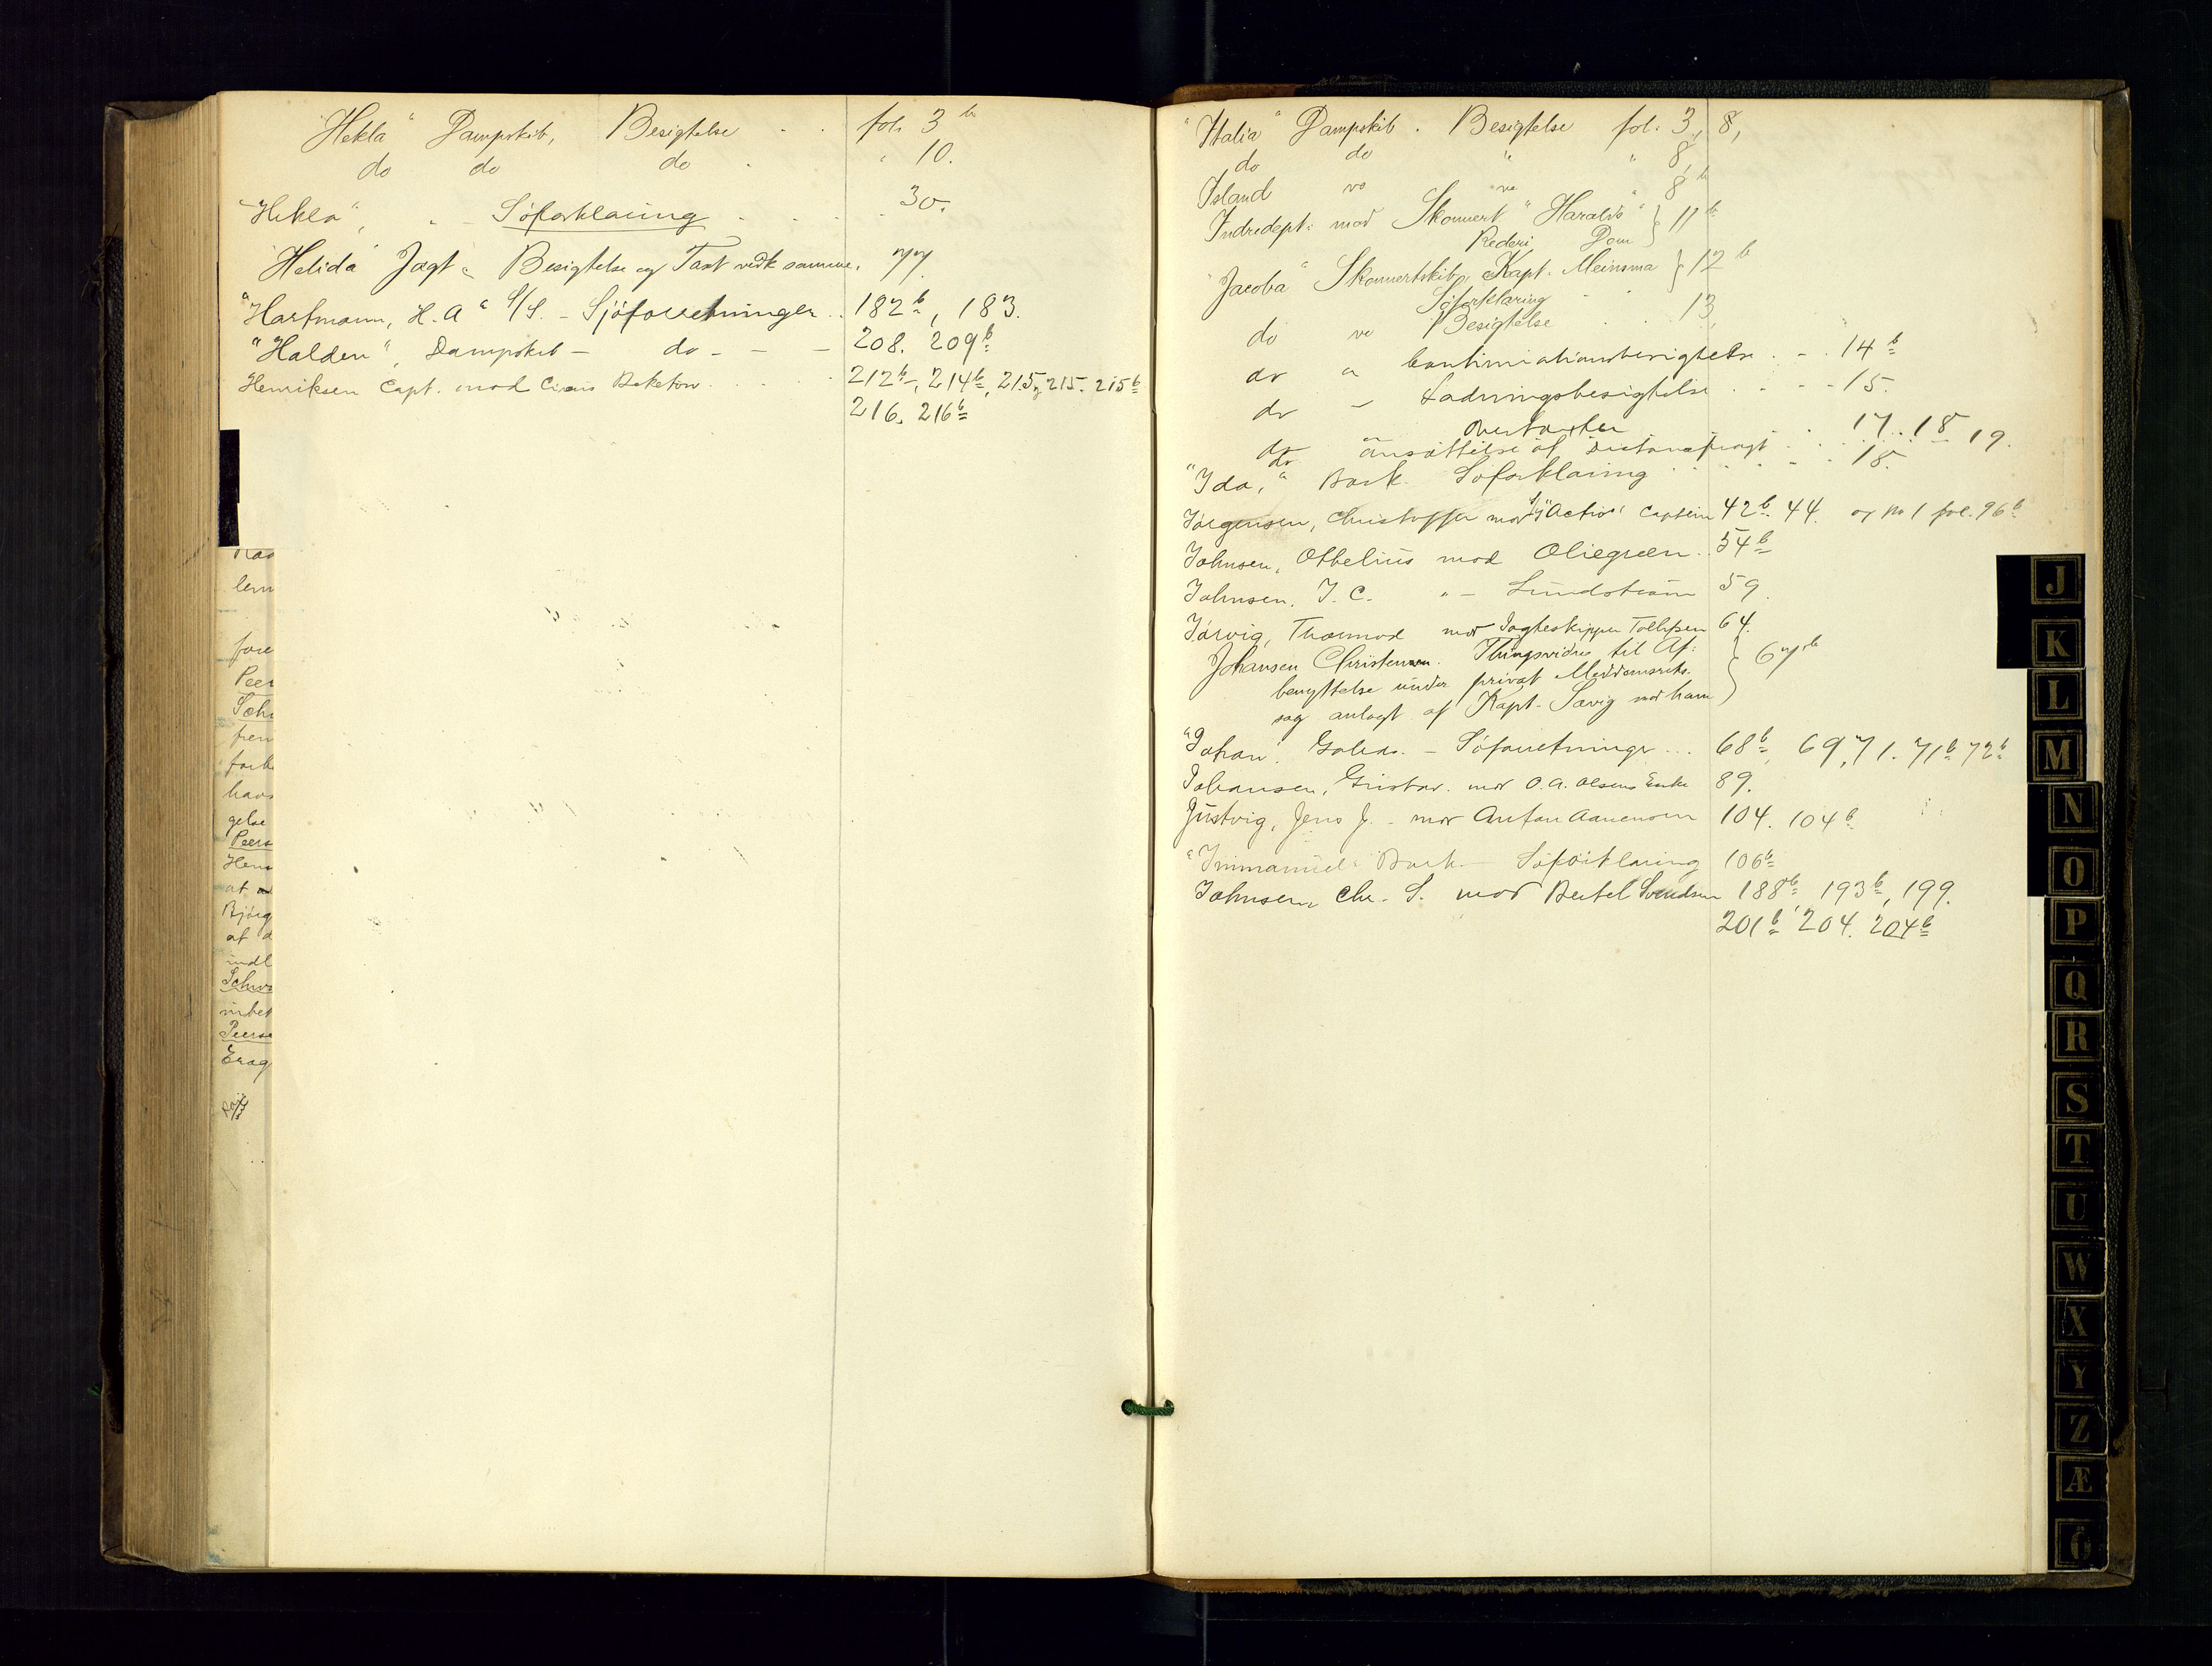 "Hekla" Dampskib, Besigtelse . . fol. 3 b
do do do . " 10.
"Hekla", " – Søforklaring . . . . 30.
"Helida" Jagt. Besigtelse og Taxt vedk samme. 77
"Hartmann, H. A" S/S. – Sjøforretninger . . 182 b, 183.
"Halden", Dampskib – do – – – 208. 209 b
Henriksen Capt. mod Circus Beketow . . . . 212 b, 214 b, 215, 215. 215 b
216. 216 b
lem
fore
Peer
frem
havs
gelse
Peers
Hens
at
Bjørg
at d
indl
Schw
Peerse
"Italia" Dampskib . Besigtelse fol. 3, 8,
do do " " 8,
Island 8 b
Indredept. mod Skonnert "Haralds" } 11 b
Rederi Dom
"Jacoba" Skonnertskib, Kapt. Meinsma } 12 b
Søforklaring
do Besigtelse . . 13,
do " Continiationsbesigtelse . . . 14 b
do – Ladningsbesigtelse . . . . 15.
do " Overtaxter . . . 17. 18 19.
do ansættelse af Distancefragt . . . 18.
"Ida," Bark. Søforklaring
Jørgensen, Christoffer mod S/S "Activ" Captein 42 b. 44. og No 1 fol. 96 b
Johnsen, Othelius mod Oliegreen . . 54 b
Johnsen, J. C. " – Lundstrøm 59.
Jørvig, Thormod mod Jagteskipper Tollefsen 64.
Johansen Christensen. Thingsvidne til Af: } 67 b
benyttelse under privat Meddomsrets.
sag anlagt af Kapt. Sævig mod ham
"Johan". Galeas. – Søforretninger . . . 68 b, 69, 71. 71 b 72 b
Johansen, Gustav. mod O. A. Olsens Enke 89.
Justvig, Jens J. – mod Anton Aanensen 104. 104 b
"Immanuel" Bark – Søforklaring 106 b
Johnsen, Chr. S. mod Bertel Svendsen 188 b, 193 b, 199.
201 b, 204. 204 b
J
K
L
M
N
O
P
Q
R
S
T
U
W
X
Y
Z
Æ
Ö